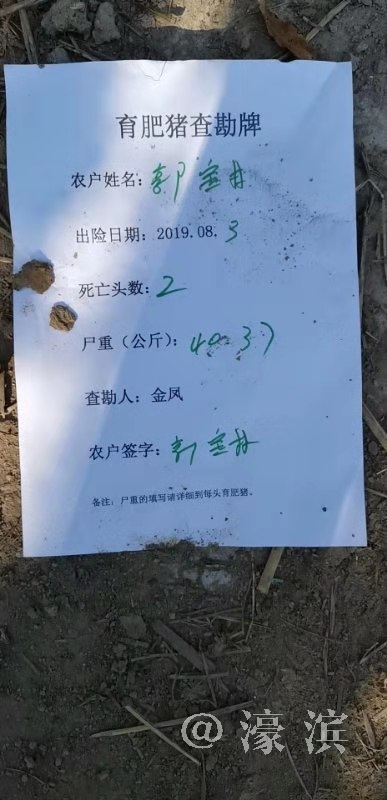 育肥猪查勘牌
农户姓名：郭宝井
出险日期：2019.08.3
死亡头数：2
尸重（公斤）：40 37
查勘人：金凤
农户签字：郭宝井
备注：尸重的填写请详细到每头育肥猪。
@濠滨